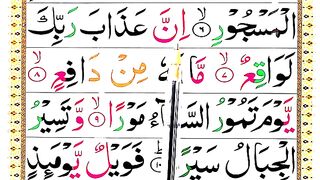 الْمَسْجُوْرِ ۙ﴿۶﴾ اِنَّ عَذَابَ رَبِّكَ
لَوَاقِعٌ ۙ﴿۷﴾ مَّا لَهٗ مِنْ دَافِعٍ ۙ﴿۸﴾
يَّوْمَ تَمُوْرُ السَّمَآءُ مَوْرًا ۙ﴿۹﴾ وَّتَسِيْرُ
الْجِبَالُ سَيْرًا ؕ﴿۱۰﴾ فَوَيْلٌ يَّوْمَئِذٍ